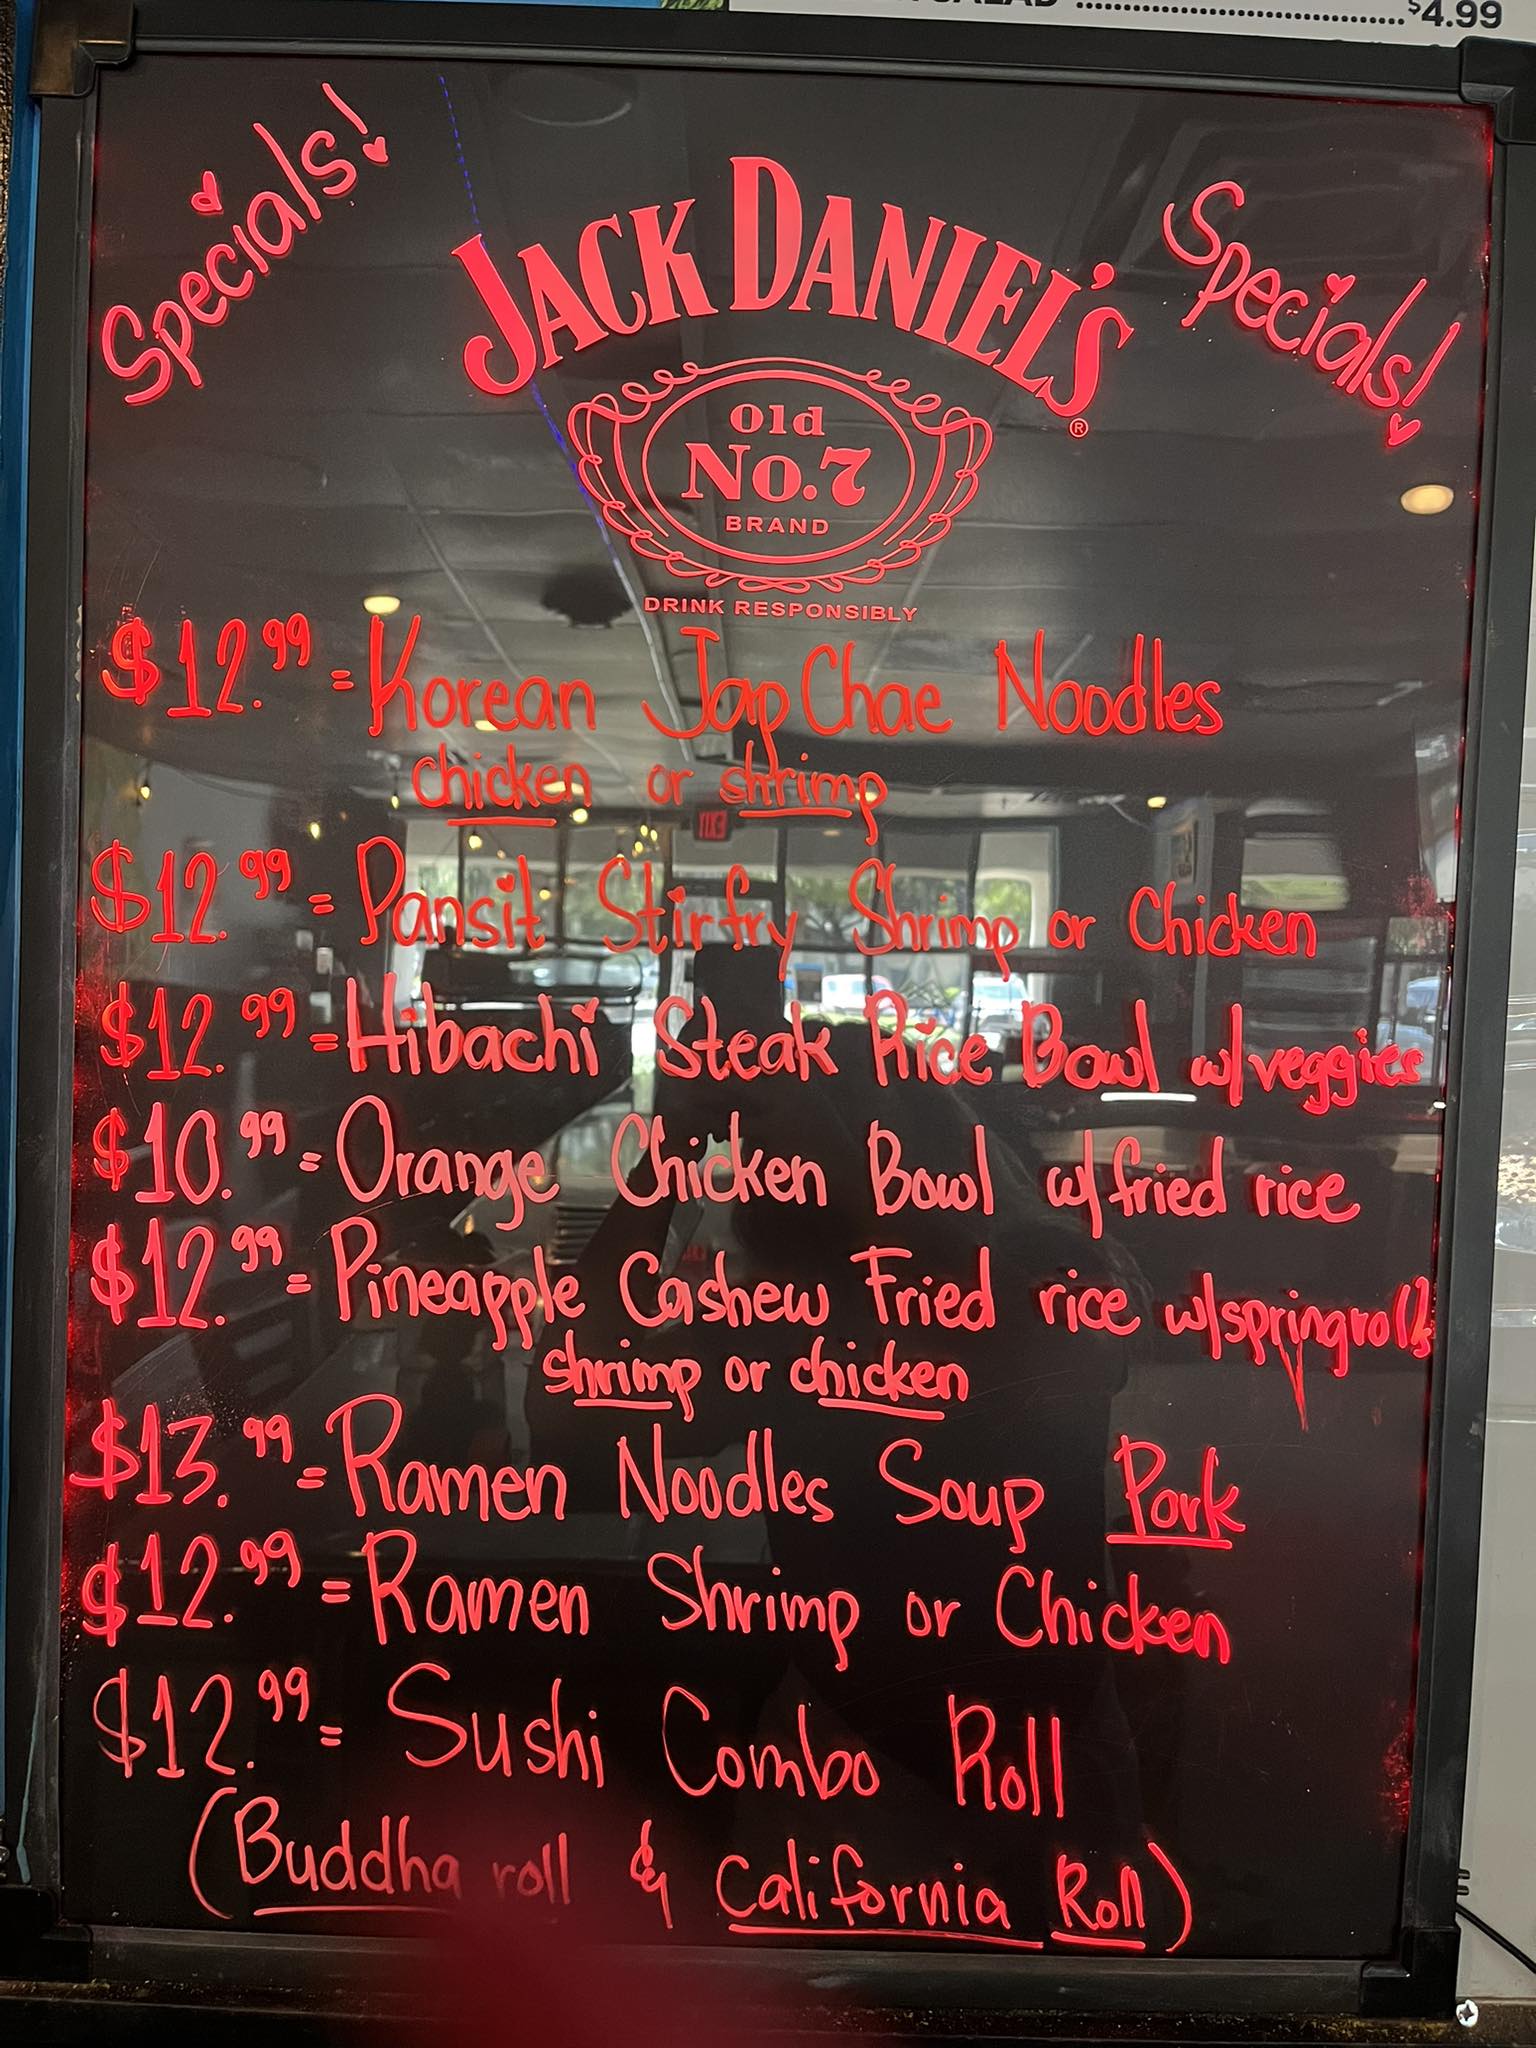 SALAD ........................ $4.99
Specials!
Specials!
JACK DANIEL'S
®
Old
No.7
BRAND
DRINK RESPONSIBLY
$12.99 = Korean Jap Chae Noodles
chicken or shrimp
$12.99 = Pansit Stirfry Shrimp or Chicken
$12.99 = Hibachi Steak Rice Bowl w/veggies
$10.99 = Orange Chicken Bowl w/fried rice
$12.99 = Pineapple Cashew Fried rice w/springrolls
shrimp or chicken
$13.99 = Ramen Noodles Soup Pork
$12.99 = Ramen Shrimp or Chicken
$12.99 = Sushi Combo Roll
(Buddha roll & California Roll)